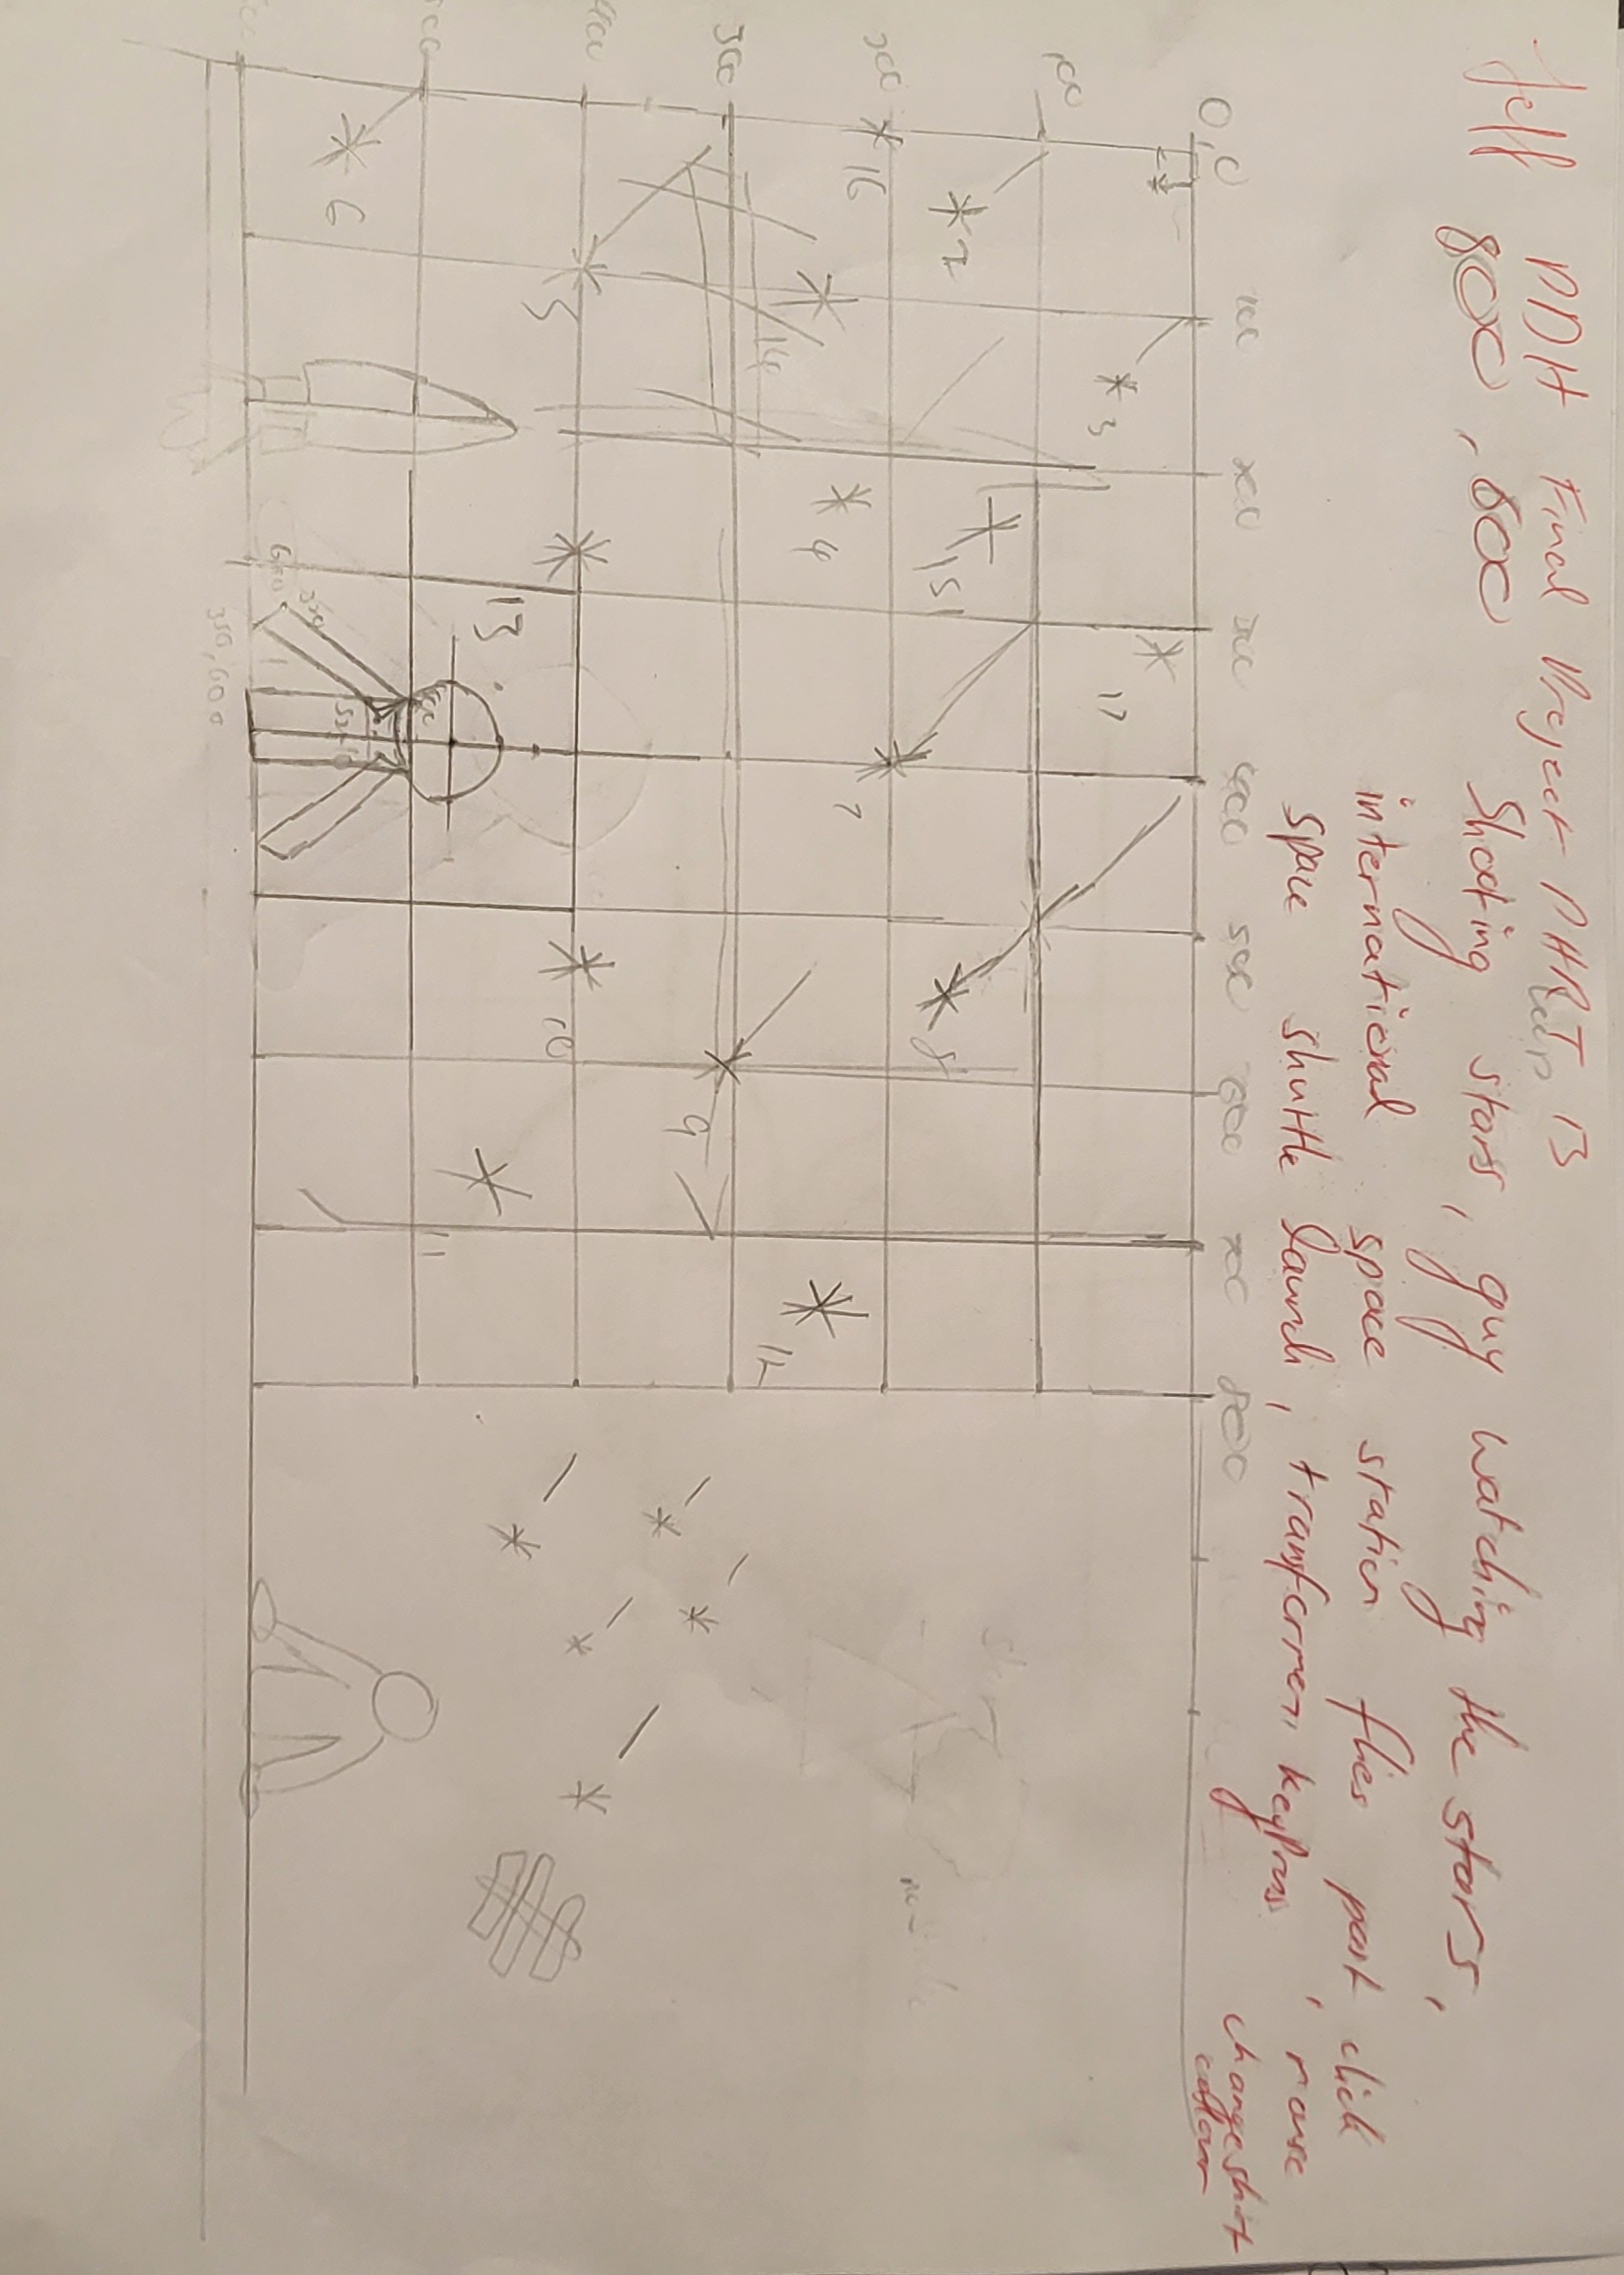 Jeff DDH Final Project PART 13
800, 800 Shooting stars, guy watching the stars,
international space station flies past, click
space shuttle launch, transform, keyPress, mouse
change shirt
colour
0,0 100 200 300 400 500 600 700 800
100
200
300
400
500
2
3
4
5
6
7
8
9
10
11
12
13
14
15
16
17
350,600